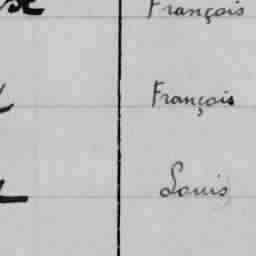 François
François
Louis